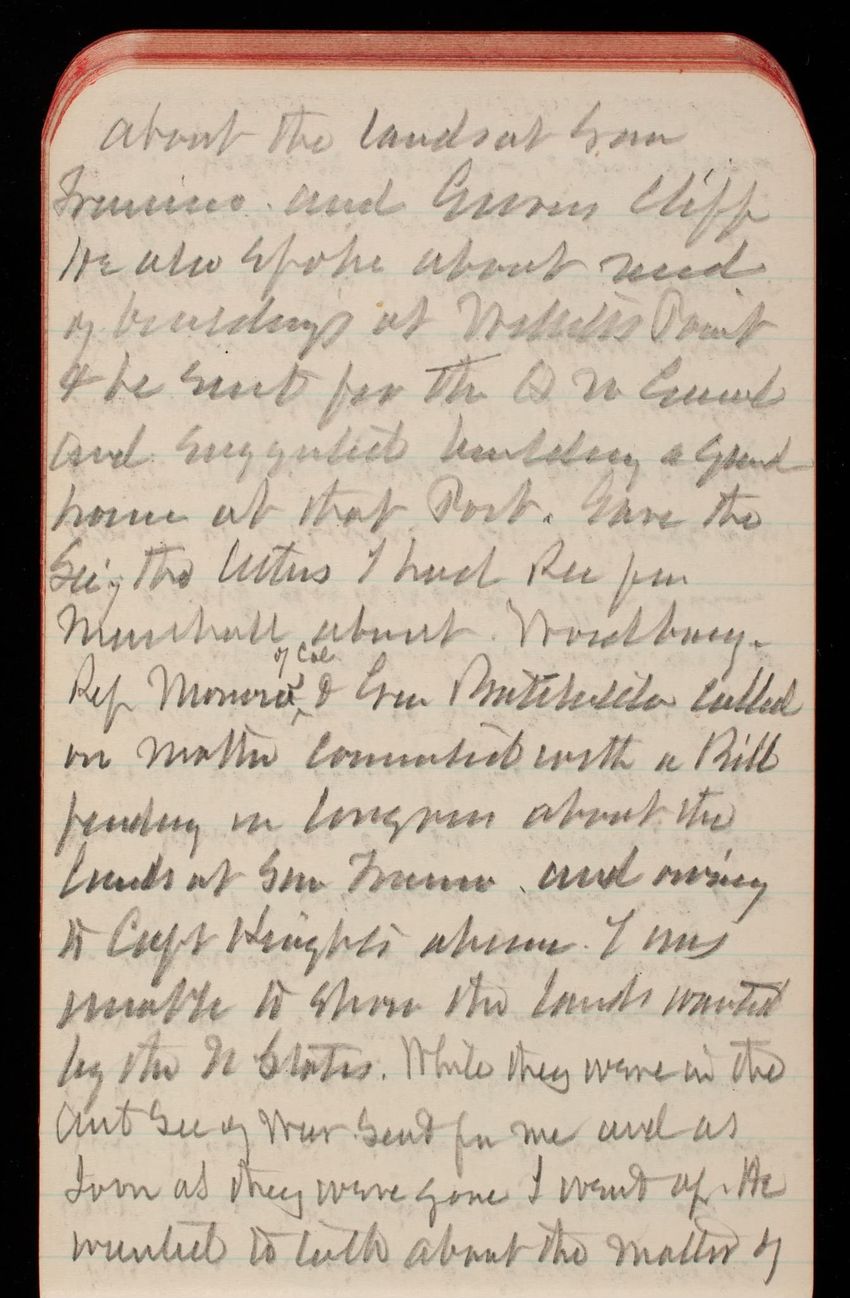 about the lands at San
Francisco and Grovers Cliff
He also spoke about need
of buildings at Willets Point
& he sent for the
and suggested building a good
house at that Post. Gave the
Sec'y the letters I had Rec from
Marshall about Woodbury.
Rep Morrow of Cal & Gen called
on matter connected with a Bill
pending in Congress about the
lands at San Francisco and owing
to Capt Knights absence I was
unable to show the lands wanted
by the U States. While they were in the
Act Sec of War Send for me and as
Soon as they were gone I went up. He
wanted to talk about the matter of